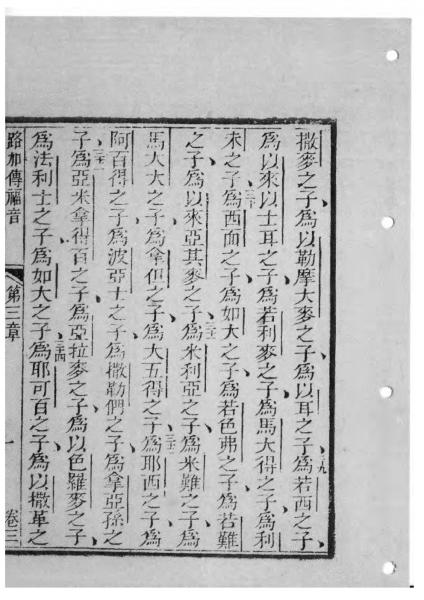 撒麥之子爲以勒摩大麥之子爲以耳之子爲若西之子
爲以來以士耳之子爲若利麥之子爲馬大得之子爲利
未之子爲西面之子爲如大之子爲若色弗之子爲若難
之子爲以來亞其麥之子爲米利亞之子爲米難之子爲
馬大大之子爲拿但之子爲大五得之子爲耶西之子爲
阿百得之子爲波亞士之子爲撒勒們之子爲拿亞孫之
子爲亞米拿得百之子爲亞拉麥之子爲以色羅麥之子
爲法利士之子爲如大之子爲耶可百之子爲以撒革之
路加傳福音 第三章 一 卷三